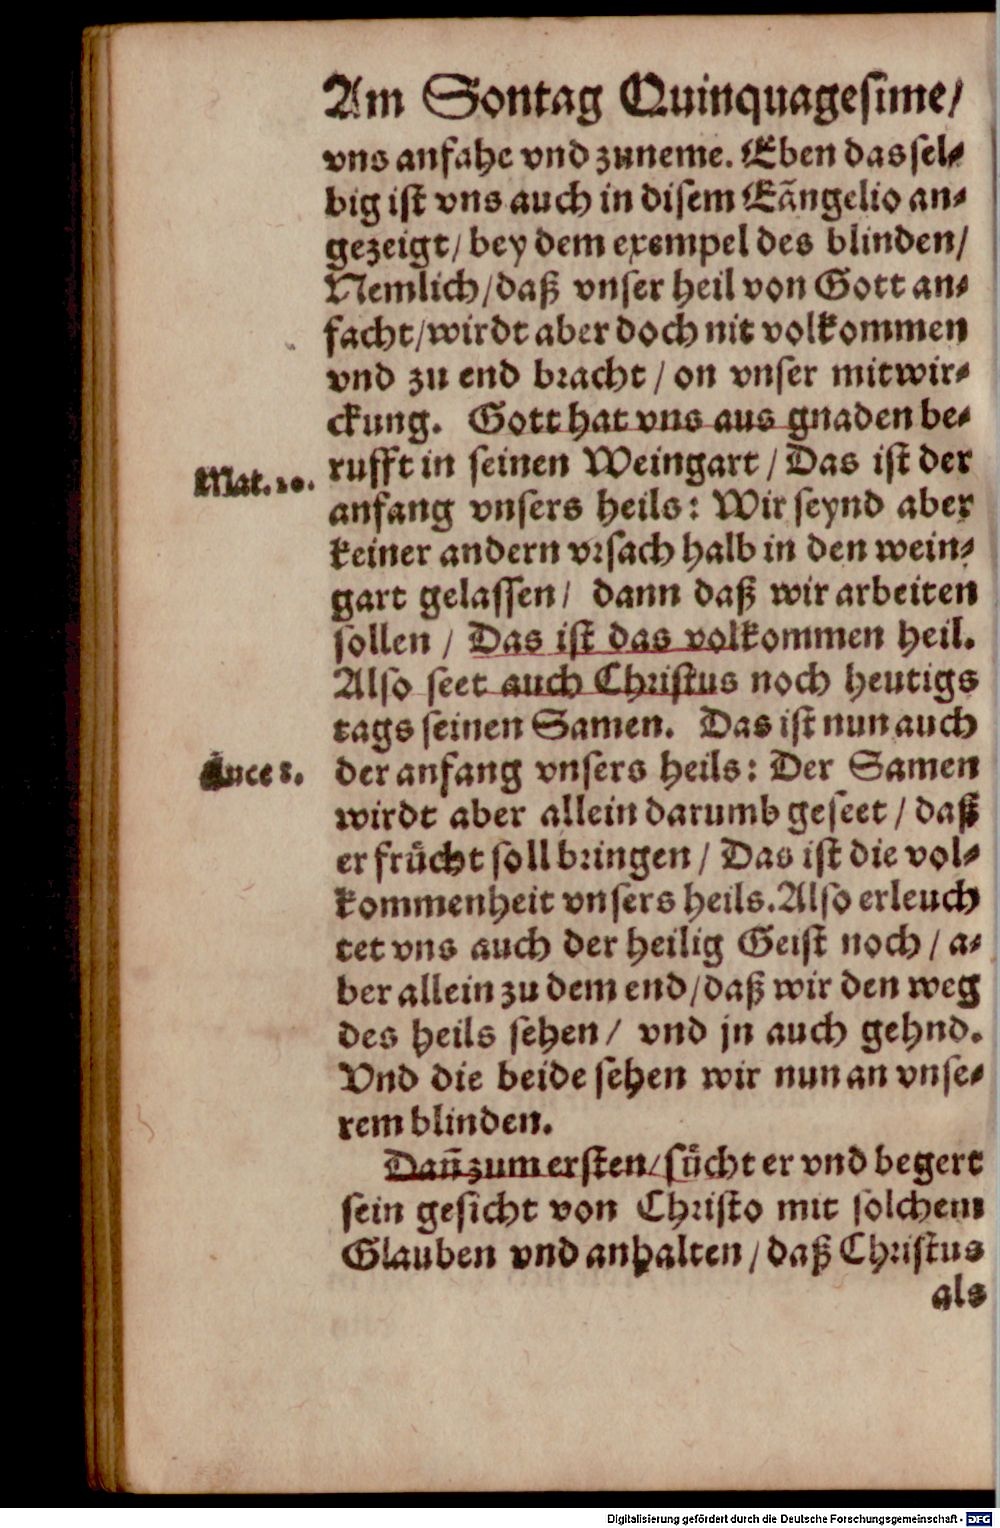 Am Sontag Quinquagesime/
vns anfahe vnd zuneme. Eben dassel⸗
big ist vns auch in disem Eãngelio an⸗
gezeigt/ bey dem exempel des blinden/
Nemlich/daß vnser heil von Gott an⸗
facht/wirdt aber doch nit volkommen
vnd zu end bracht / on vnser mitwir⸗
ckung. Gott hat vns aus gnaden be⸗
Mat. 20.
rufft in seinen Weingart / Das ist der
anfang vnsers heils: Wir seynd aber
keiner andern vrsach halb in den wein⸗
gart gelassen/ dann daß wir arbeiten
sollen / Das ist das volkommen heil.
Also seet auch Christus noch heutigs
tags seinen Samen. Das ist nun auch
Luce 8.
der anfang vnsers heils: Der Samen
wirdt aber allein darumb geseet / daß
er frůcht soll bringen / Das ist die vol⸗
kommenheit vnsers heils. Also erleuch
tet vns auch der heilig Geist noch / a⸗
ber allein zu dem end/daß wir den weg
des heils sehen/ vnd jn auch gehnd.
Vnd die beide sehen wir nun an vnse⸗
rem blinden.
Dañ zum ersten/ sůcht er vnd begert
sein gesicht von Christo mit solchem
Glauben vnd anhalten / daß Christus
als
Digitalisierung gefördert durch die Deutsche Forschungsgemeinschaft - DFG